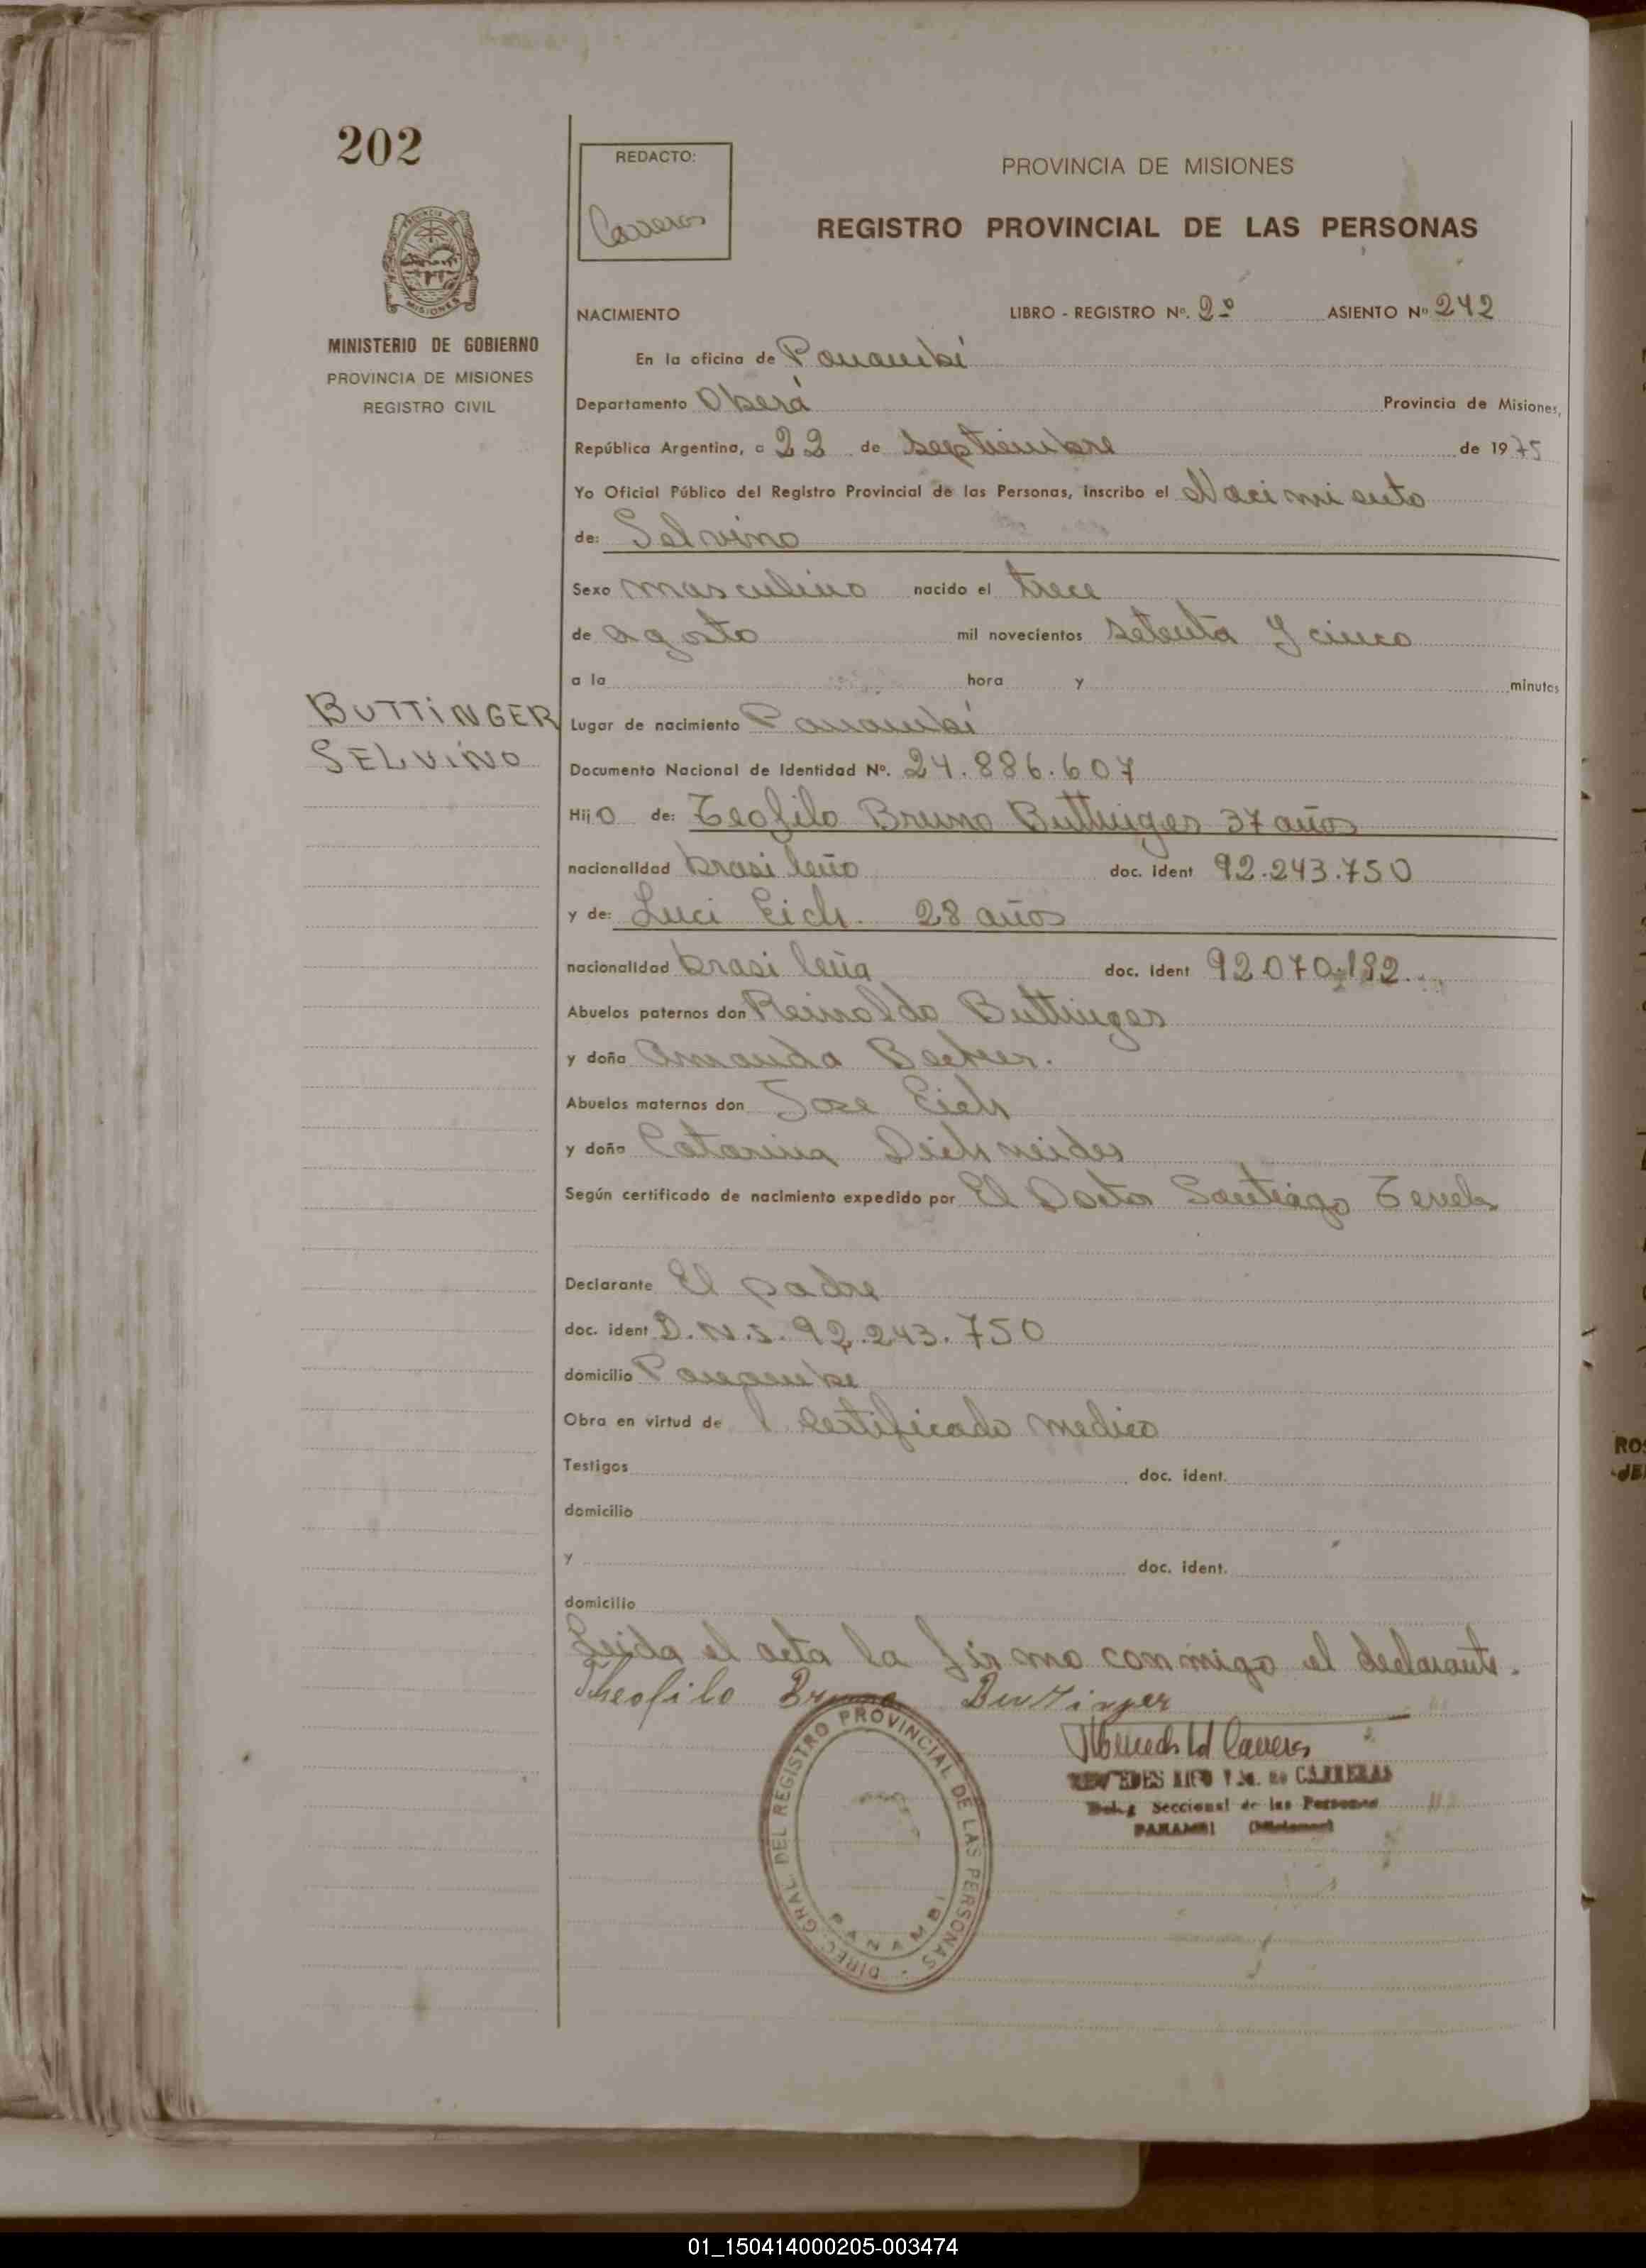 202
REDACTO:
Carreras
PROVINCIA DE MISIONES
REGISTRO PROVINCIAL DE LAS PERSONAS
MINISTERIO DE GOBIERNO
PROVINCIA DE MISIONES
REGISTRO CIVIL
NACIMIENTO LIBRO - REGISTRO Nº. 2º ASIENTO Nº 242
En la oficina de Panambí
Departamento Oberá Provincia de Misiones,
República Argentina, a 22 de septiembre de 1975
Yo Oficial Público del Registro Provincial de las Personas, inscribo el Nacimiento
de: Selvino
Sexo masculino nacido el trece
de agosto mil novecientos setenta y cinco
a la hora y minutos
BUTTINGER
SELVINO
Lugar de nacimiento Panambí
Documento Nacional de Identidad Nº. 24.886.607
Hijo de: Teofilo Bruno Buttinger 37 años
nacionalidad brasileño doc. ident 92.243.750
y de: Luci Eich. 28 años
nacionalidad brasileña doc. ident 92.070.192
Abuelos paternos don Reinoldo Buttinger
y doña Amanda Becker.
Abuelos maternos don Jose Eich
y doña Catarina
Según certificado de nacimiento expedido por El Doctor Santiago
Declarante El padre
doc. ident D.N.I. 92.243.750
domicilio Panambi
Obra en virtud de 1 certificado medico
Testigos doc. ident.
domicilio
y doc. ident.
domicilio
Leida el acta la firma conmigo el declarante.
Theofilo Bruno Buttinger
DIREC. GRAL. DEL REGISTRO PROVINCIAL DE LAS PERSONAS -
PANAMBI
de CARRERAS
Seccional de las Personas
PANAMBI (Misiones)
01_150414000205-003474